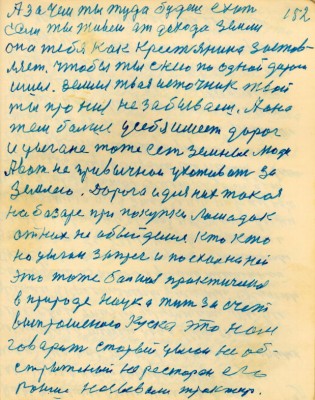 А зачем ты туда будеш ехат 152
сам ты живеш от дохода земли
она тебя как крестянина застов-
ляет. чтобы ты ехал по одной дороги
земли твая источник твой
ты про ние не забываеш. А она
тем более у себя имеет дорог
и цыгане тоже сет земляе мож
Авот не привычной ухоживат за
землею. Дорога и для них такая
на базаре при покупки лошадок
от них не обыйдешся. Кто кто
но цыган запрег и поехал на ней
это тоже балшая практическа
в природе наука жит за счет
выпрошеного куска это нам
говорит старый цыган не об-
на ресторан его
раньше называли трактир.